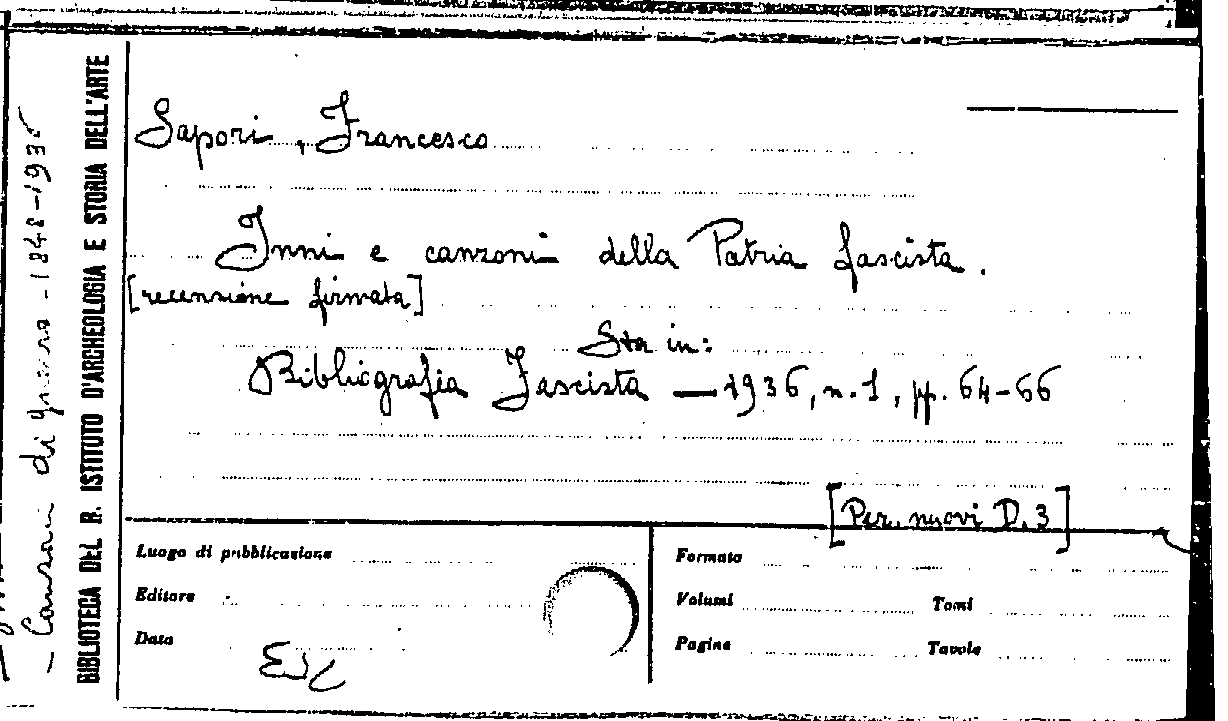 Sapori, Francesco
Inni e canzoni della Patria fascista.
[recensione firmata]
Sta in:
Bibliografia Fascista — 1936, n. 1, pp. 64-66
[Per. nuovi D. 3]
Luogo di pubblicazione
Editore
Data
Formato
Volumi Tomi
Pagine Tavole
BIBLIOTECA DEL R. ISTITUTO D'ARCHEOLOGIA E STORIA DELL'ARTE
- Canzoni di guerra - 1848-1935